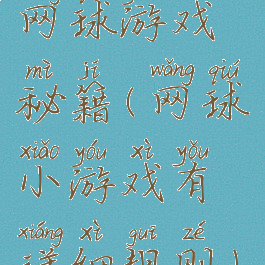 网球游戏
mì jí wǎng qiú
秘籍(网球
xiǎo yóu xì yǒu
小游戏有
xiáng xì guī zé
详细规则)